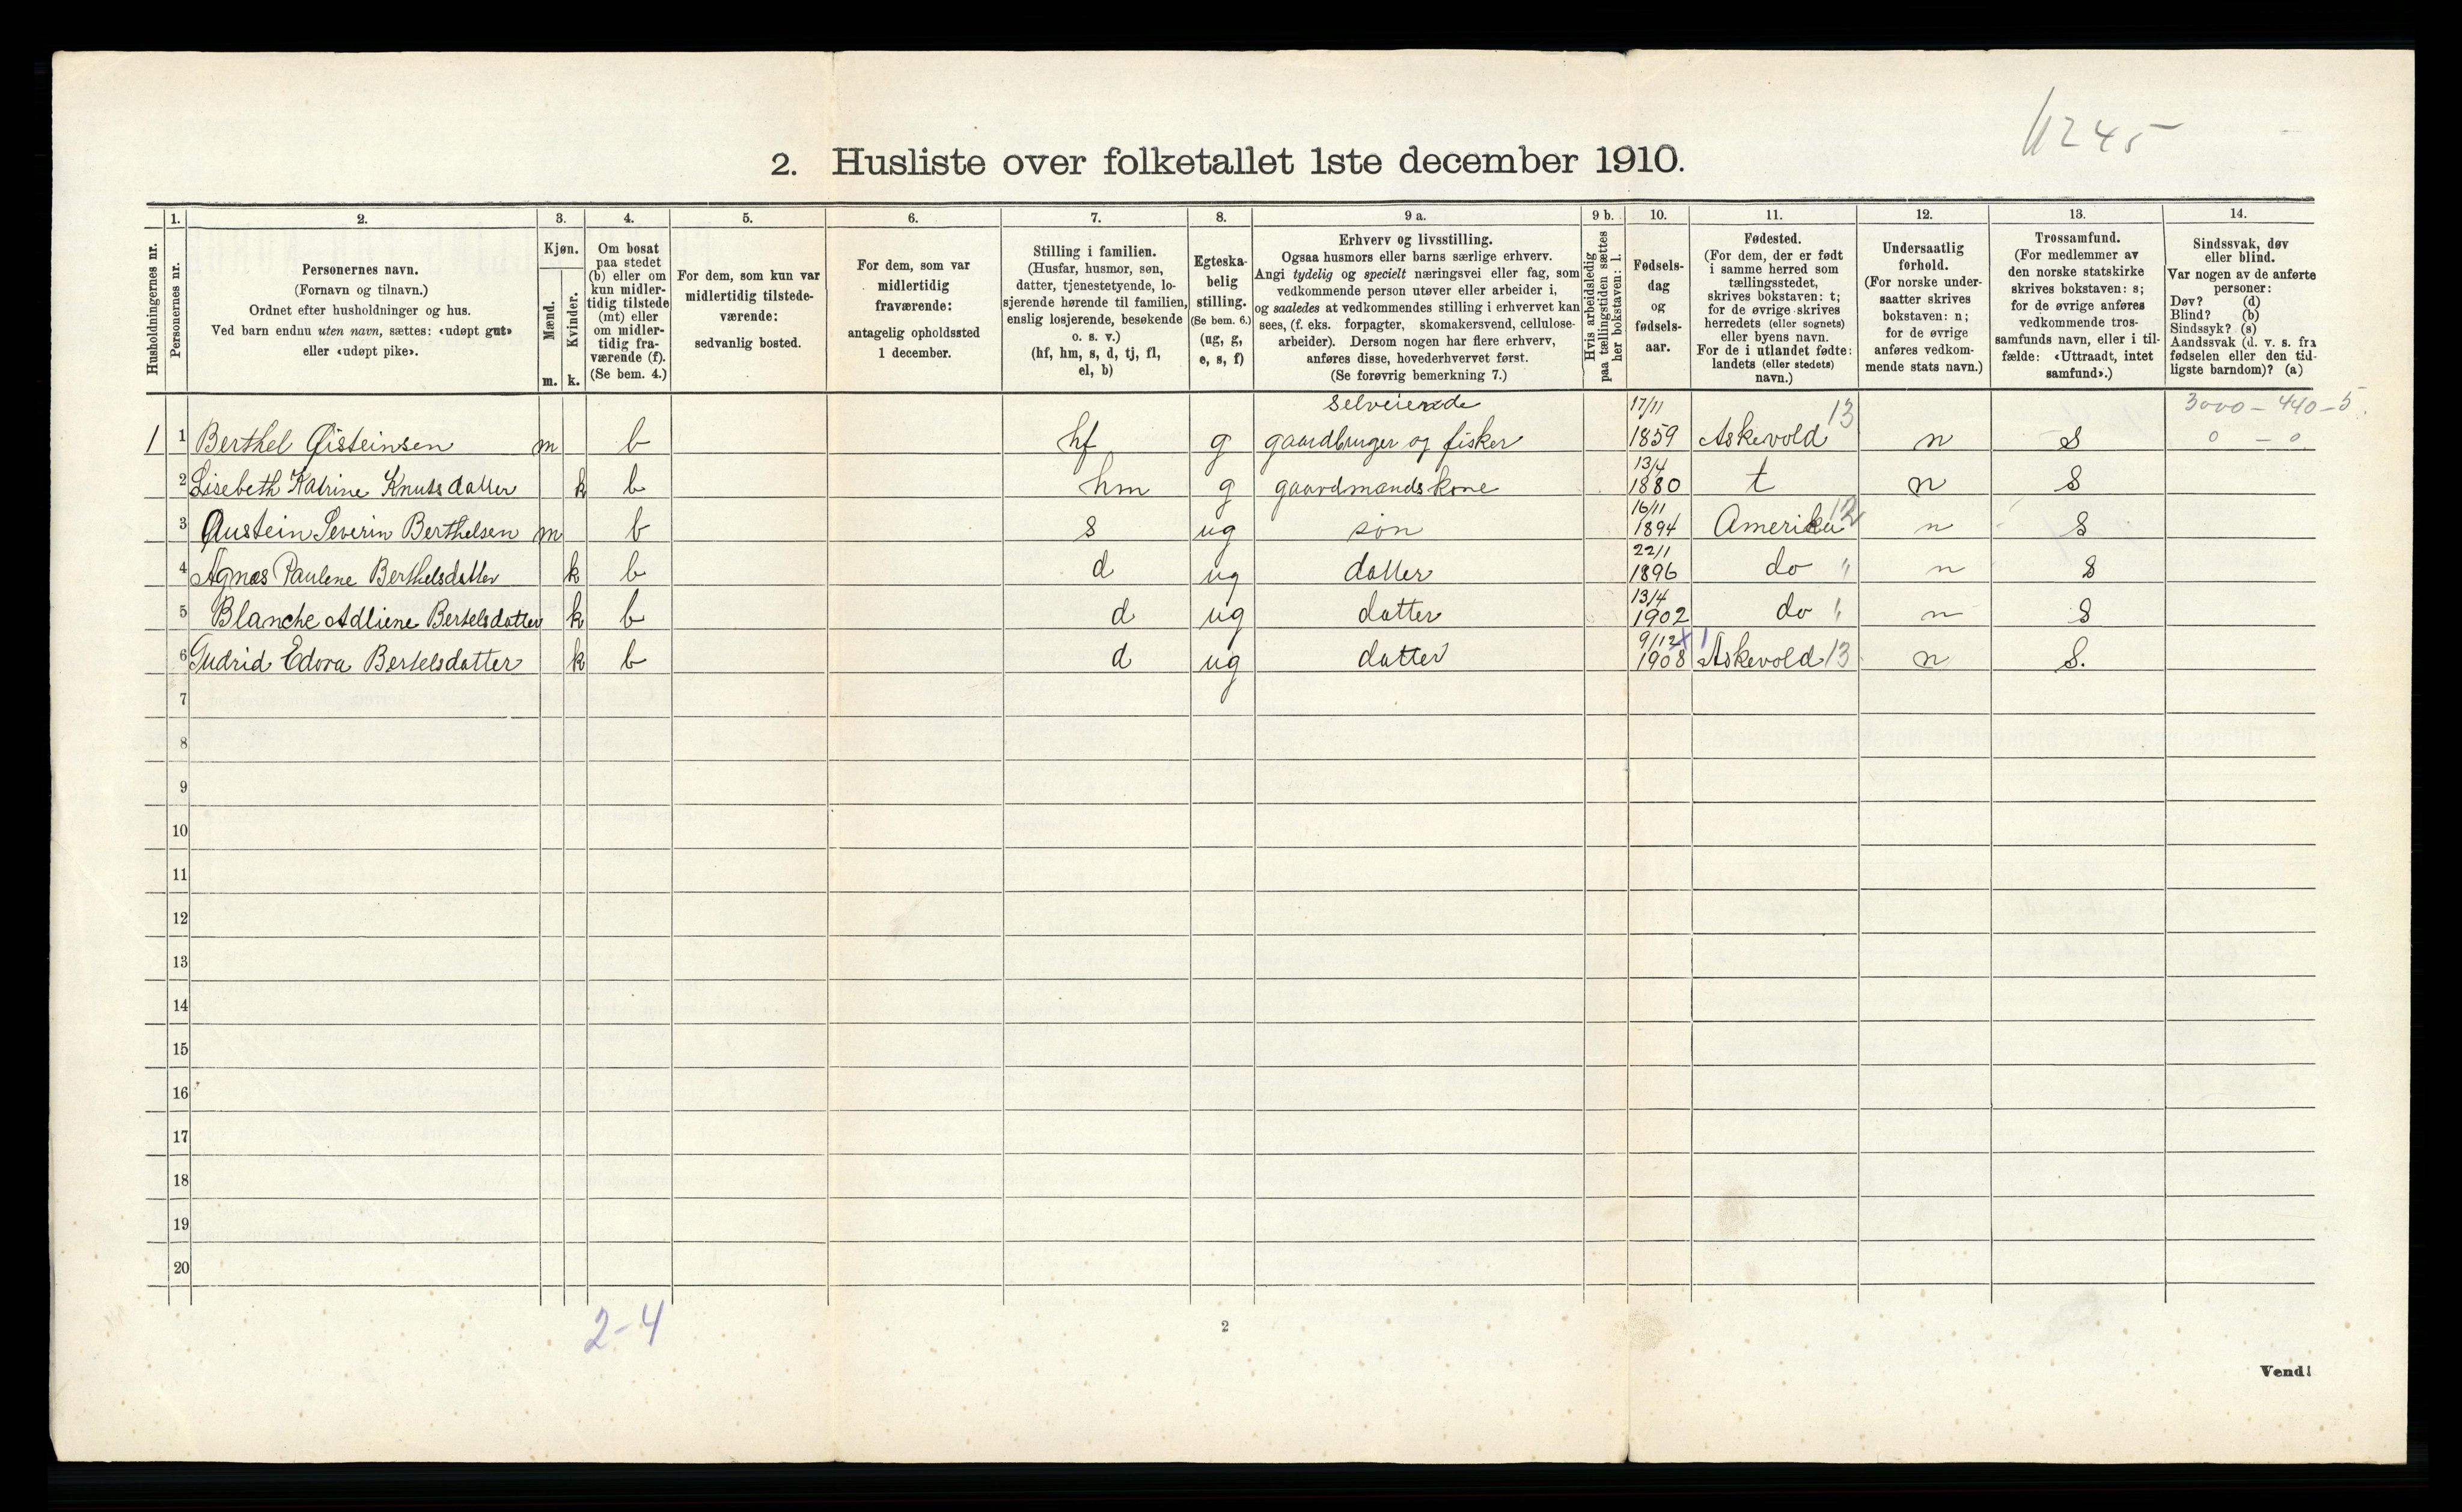 1245
2. Husliste over folketallet 1ste december 1910.
Husholdningernes nr.
1. Personernes nr.
2. Personernes navn.
(Fornavn og tilnavn.)
Ordnet efter husholdninger og hus.
Ved barn endnu uten navn, sættes: «udøpt gut»
eller «udøpt pike».
3. Kjøn.
Mænd. m.
Kvinder. k.
4. Om bosat
paa stedet
(b) eller om
kun midler-
tidig tilstede
(mt) eller
om midler-
tidig fra-
værende (f).
(Se bem. 4.)
5. For dem, som kun var
midlertidig tilstede-
værende:
sedvanlig bosted.
6. For dem, som var
midlertidig
fraværende:
antagelig opholdssted
1 december.
7. Stilling i familien.
(Husfar, husmor, søn,
datter, tjenestetyende, lo-
sjerende hørende til familien,
enslig losjerende, besøkende
o. s. v.)
(hf, hm, s, d, tj, fl,
el, b)
8. Egteska-
belig
stilling.
(Se bem. 6.)
(ug, g,
e, s, f)
9 a. Erhverv og livsstilling.
Ogsaa husmors eller barns særlige erhverv.
Angi tydelig og specielt næringsvei eller fag, som
vedkommende person utøver eller arbeider i,
og saaledes at vedkommendes stilling i erhvervet kan
sees, (f. eks. forpagter, skomakersvend, cellulose-
arbeider). Dersom nogen har flere erhverv,
anføres disse, hovederhvervet først.
(Se forøvrig bemerkning 7.)
9 b. Hvis arbeidsledig
paa tællingstiden sættes
her bokstaven: l.
10. Fødsels-
dag
og
fødsels-
aar.
11. Fødested.
(For dem, der er født
i samme herred som
tællingsstedet,
skrives bokstaven: t;
for de øvrige skrives
herredets (eller sognets)
eller byens navn.
For de i utlandet fødte:
landets (eller stedets)
navn.)
12. Undersaatlig
forhold.
(For norske under-
saatter skrives
bokstaven: n;
for de øvrige
anføres vedkom-
mende stats navn.)
13. Trossamfund.
(For medlemmer av
den norske statskirke
skrives bokstaven: s;
for de øvrige anføres
vedkommende tros-
samfunds navn, eller i til-
fælde: «Uttraadt, intet
samfund».)
14. Sindssvak, døv
eller blind.
Var nogen av de anførte
personer:
Døv? (d)
Blind? (b)
Sindssyk? (s)
Aandssvak (d. v. s. fra
fødselen eller den tid-
ligste barndom)? (a)
selveiende 17/11 13 3000 - 440 - 5.
1 1 Berthel Øisteinsen m b hf g gaardbruger og fisker 1859 Askevold n S 0 - 0
13/4
2 Lisebeth Katrine Knutsdatter k b hm g gaardmandskone 1880 t n S
16/11
3 Austein Severin Berthelsen m b s ug søn 1894 Amerika 12 n S
22/1
4 Agnes Paulene Berthelsdatter k b d ug datter 1896 do " n S
13/4
5 Blanche Adliene Bertelsdatter k b d ug datter 1902 do " n S
9/12 x 1
6 Gudrid Edora Bertelsdatter k b d ug datter 1908 Askevold 13 n S.
7
8
9
10
11
12
13
14
15
16
17
18
19
20
2-4
2
Vend!